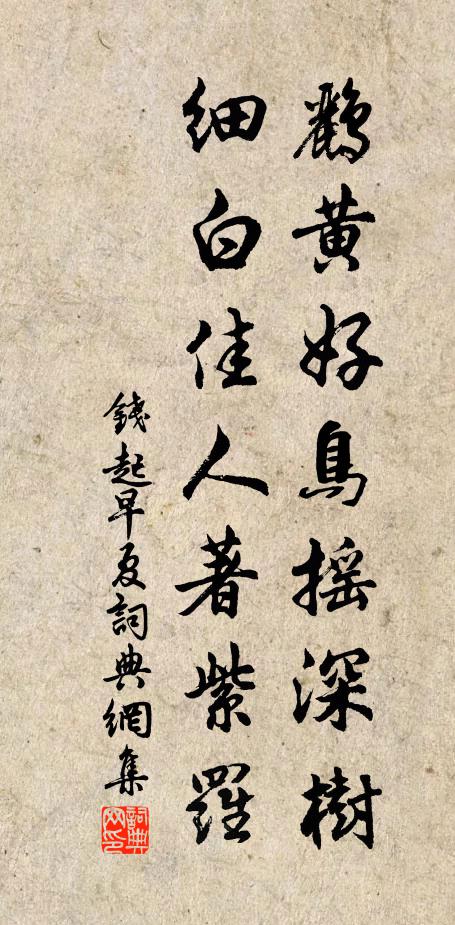 鸝黃好鳥搖深樹
細白佳人著紫羅
錢起早夏詞典網集
詞典網印